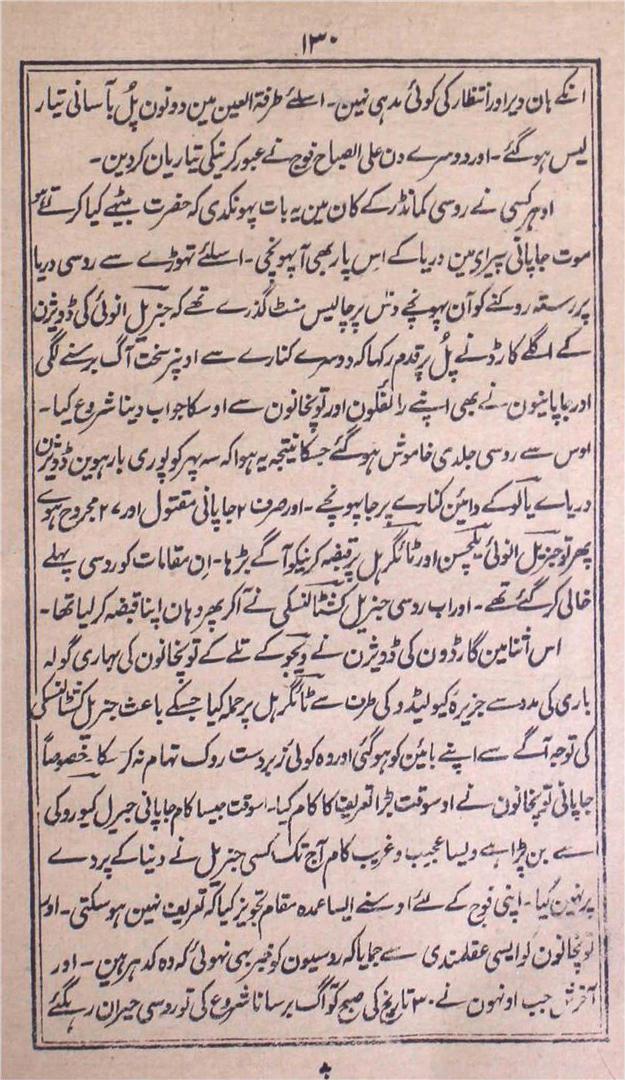 ۱۳۰
انکے ہان دیر اور انتظار کی کوئی مد ہی نہین۔ اسلئے طرفۃ العین مین دونون پُل بآسانی تیار
لیس ہو گئے۔ اور دوسرے دن علی الصباح فوج نے عبور کرنیکی تیاریان کردین۔
اوہر کسی نے روسی کمانڈر کے کان مین یہ بات پہونکدی کہ حضرت بیٹھے کیا کرتے ہو
موت جاپانی پیرای مین دریا کے اس پار بھی آپہونچی۔ اسلئے تہوڑے سے روسی دریا
پر رستہ روکنے کو آن پہونچے دس پر چالیس منٹ گذرے تھے کہ جنریل انوئی کی ڈویژن
کے اگلے گارڈ نے پُل پر قدم رکہا کہ دوسرے کنارے سے اونپر سخت آگ برسنے لگی
اور جاپانیون نے بھی اپنے رائفلون اور توپخانون سے اوسکا جواب دینا شروع کیا۔
اوس سے روسی جلدی خاموش ہو گئے جسکا نتیجہ یہ ہوا کہ سہ پہر کو پوری بارہوین ڈویژن
دریاے یالو کے دائین کنارے پر جا پہونچے۔ اور صرف ۲ جاپانی مقتول اور ۲۷ مجروح ہوے
پھر تو جنریل انوئی یلچسن اور ٹائگر ہل پر قبضہ کرنیکو آگے بڑہا۔ اِن مقامات کو روسی پہلے
خالی کر گئے تھے۔ اور اب روسی جنریل کشٹالنسکی نے آکر پھر وہان اپنا قبضہ کر لیا تھا۔
اس اثنا مین گارڈون کی ڈویژن نے ویجو کے تلے کے توپخانون کی بہاری گولہ
باری کی مدد سے جزیرہ کیولیڈو کی طرف سے ٹائگر ہل پر حملہ کیا جسکے باعث جنرل کشٹالنسکی
کی توجہ آگے سے اپنے بائین کو ہو گئی اور وہ کوئی زبردست روک تہام نہ کر سکا۔ خصوصاً
جاپانی توپخانون نے اوسوقت بڑا تعریف کا کام کیا۔ اسوقت جیسا کام جاپانی جنریل کیوروکی
سے بن پڑا ہے ویسا عجیب و غریب کام آج تک کسی جنریل نے دنیا کے پردے
پر نہین کیا۔ اپنی فوج کے لئے اوسنے ایسا عمدہ مقام تجویز کیا کہ تعریف نہین ہو سکتی۔ اور
توپخانون کو ایسی عقلمندی سے جمایا کہ روسیون کو خبر بہی نہوئی کہ وہ کدہر ہین۔ اور
آخرش جب اونہون نے ۳۰ تاریخ کی صبح کو آگ برسانا شروع کی تو روسی حیران رہگئے